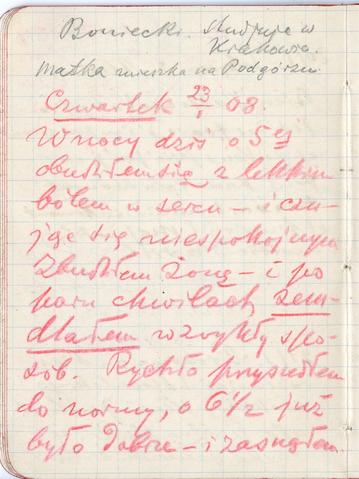 Boniecki. studjuje w
Krakowie.
Matka mieszka na Podgórzu.
Czwartek 23/I 08.
W nocy dziś o 5ej
obudziłem się z lekkim
bólem w sercu – i czu-
jąc się niespokojnym
zbudziłem żonę – i po
paru chwilach zem-
dlałem w zwykły spo-
sób. Rychło przyszedłem
do normy, o 6½ już
było dobrze – i zasnąłem.